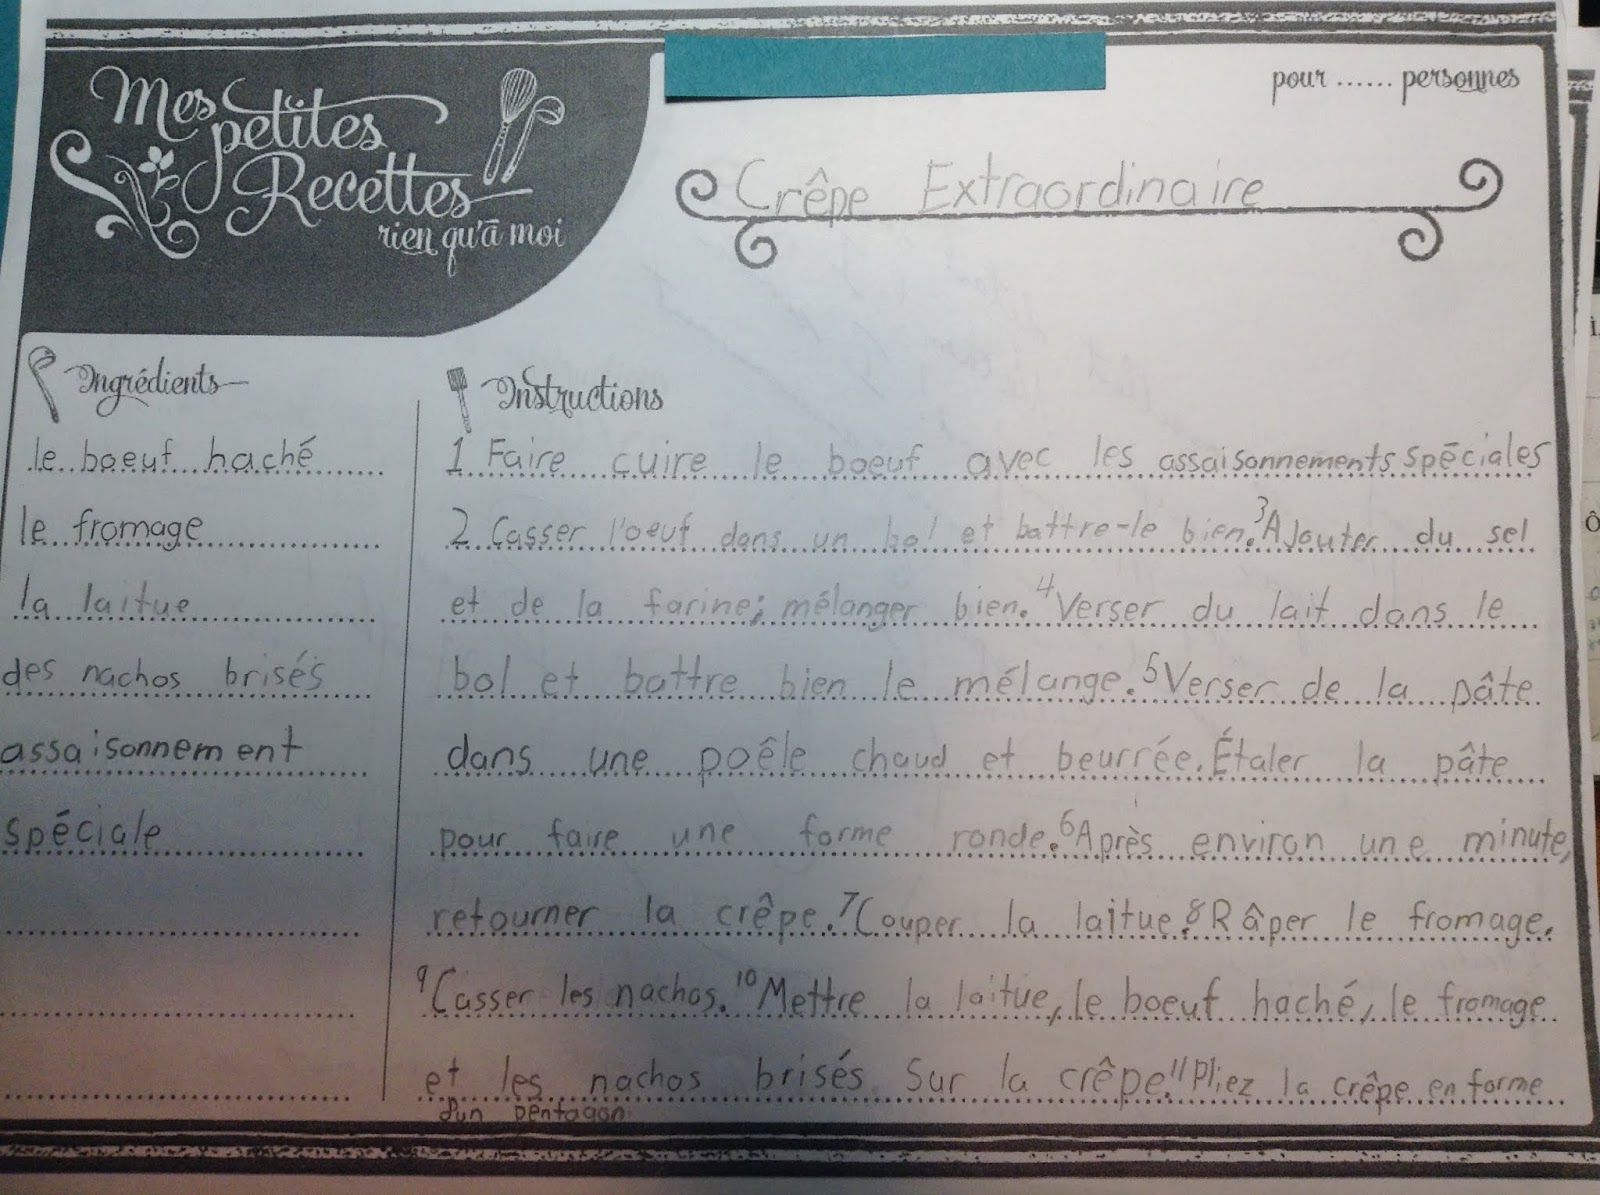 Mes petites Recettes rien qu'à moi
pour ...... personnes
Crêpe Extraordinaire
Ingrédients
le boeuf haché
le fromage
la laitue
des nachos brisés
assaisonnement
spéciale
Instructions
1 Faire cuire le boeuf avec les assaisonnements spéciales
2 Casser l'oeuf dans un bol et battre-le bien. 3 Ajouter du sel
et de la farine; mélanger bien. 4 Verser du lait dans le
bol et battre bien le mélange. 5 Verser de la pâte
dans une poêle chaud et beurrée. Étaler la pâte
pour faire une forme ronde. 6 Après environ une minute,
retourner la crêpe. 7 Couper la laitue. 8 Râper le fromage.
9 Casser les nachos. 10 Mettre la laitue, le boeuf haché, le fromage
et les nachos brisés sur la crêpe. 11 Pliez la crêpe en forme
d'un pentagon